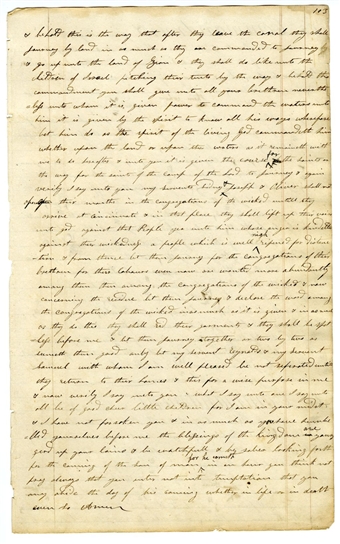 103
& behold this is the way that after they leave the canal they shall
journey by land in as much as they are commanded to journey
& go up unto the land of Zion & they shall do like unto the
children of Israel pitching their tents by the way & behold this
commandment you shall give unto all your brethren nevertheless
unto whom it is given power to command the waters unto
him it is given by the spirit to know all his ways wherefore
let him do as the spirit of the living God commandeth him
whether upon the land or upon the waters as it remaineth with
me to do hereafter & unto you it is given the course for the saints or
the way for the saints of the camp of the Lord to journey & again
verily I say unto you my servents Sidney & Joseph & Oliver shall not
open their mouths in the congregations of the wicked untill they
arive at Cincinati & in that place they shall lift up their voices
unto god against that People yea unto him whose anger is kindeled
against their wickedness a people which is well nigh ripened for distruc
tion & from thence let them journey for the congregations of their
brethren for their labours even now are wanted more abundantly
among them then among the congregations of the wicked & now
concerning the residue let them journey & declare the word among
the congregations of the wicked inasmuch as it is given & in as much
as they do this they shall rid their garments & they shall be spot
less before me & let them journey together or two by two as
seemeth them good only let my servent Reynolds & my servent
Samuel with whom I am well pleased be not seperated untill
they return to their homes & this for a wise purpose in me
& now verily I say unto you & what I say unto one I say unto
all be of good cheer little children for I am in your midst
& I have not forsaken you & in as much as you have humb
led yourselves before me the blessings of the kingdom are yours
gird up your loins & be watchfull & be sober looking forth
for the coming of the Son of man for he cometh in an hour you think not
pray always that you enter not into temptations that you
may abide the day of his coming whether in life or in death
even so Amen